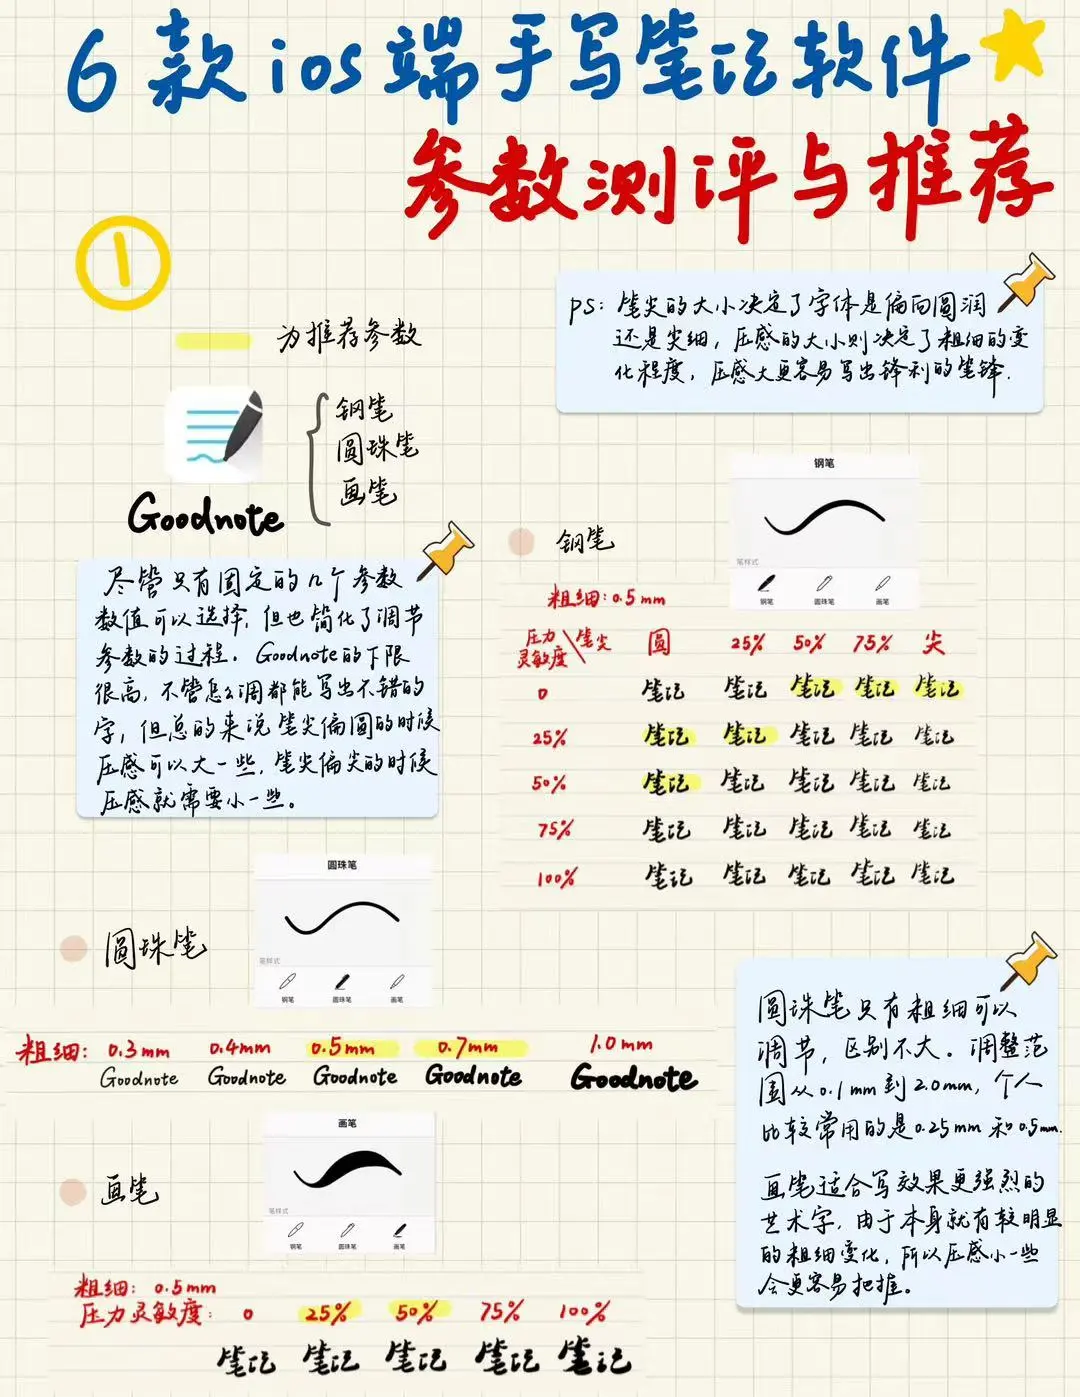 6款ios端手写笔记软件
参数测评与推荐
1
为推荐参数
PS：笔尖的大小决定了字体是偏向圆润
还是尖细，压感的大小则决定了粗细的变
化程度，压感大更容易写出锋利的笔锋.
Goodnote
钢笔
圆珠笔
画笔
尽管只有固定的几个参数
数值可以选择，但也简化了调节
参数的过程。Goodnote的下限
很高，不管怎么调都能写出不错的
字，但总的来说笔尖偏圆的时候
压感可以大一些，笔尖偏尖的时候
压感就需要小一些。
钢笔
钢笔
笔样式
钢笔 圆珠笔 画笔
粗细：0.5mm
压力灵敏度\笔尖 圆 25% 50% 75% 尖
0 笔记 笔记 笔记 笔记 笔记
25% 笔记 笔记 笔记 笔记 笔记
50% 笔记 笔记 笔记 笔记 笔记
75% 笔记 笔记 笔记 笔记 笔记
100% 笔记 笔记 笔记 笔记 笔记
圆珠笔
圆珠笔
笔样式
钢笔 圆珠笔 画笔
粗细：0.3mm 0.4mm 0.5mm 0.7mm 1.0mm
Goodnote Goodnote Goodnote Goodnote Goodnote
圆珠笔只有粗细可以
调节，区别不大。调整范
围从0.1mm到2.0mm，个人
比较常用的是0.25mm和0.5mm.
画笔适合写效果更强烈的
艺术字，由于本身就有较明显
的粗细变化，所以压感小一些
会更容易把握。
画笔
画笔
笔样式
钢笔 圆珠笔 画笔
粗细：0.5mm
压力灵敏度：0 25% 50% 75% 100%
笔记 笔记 笔记 笔记 笔记